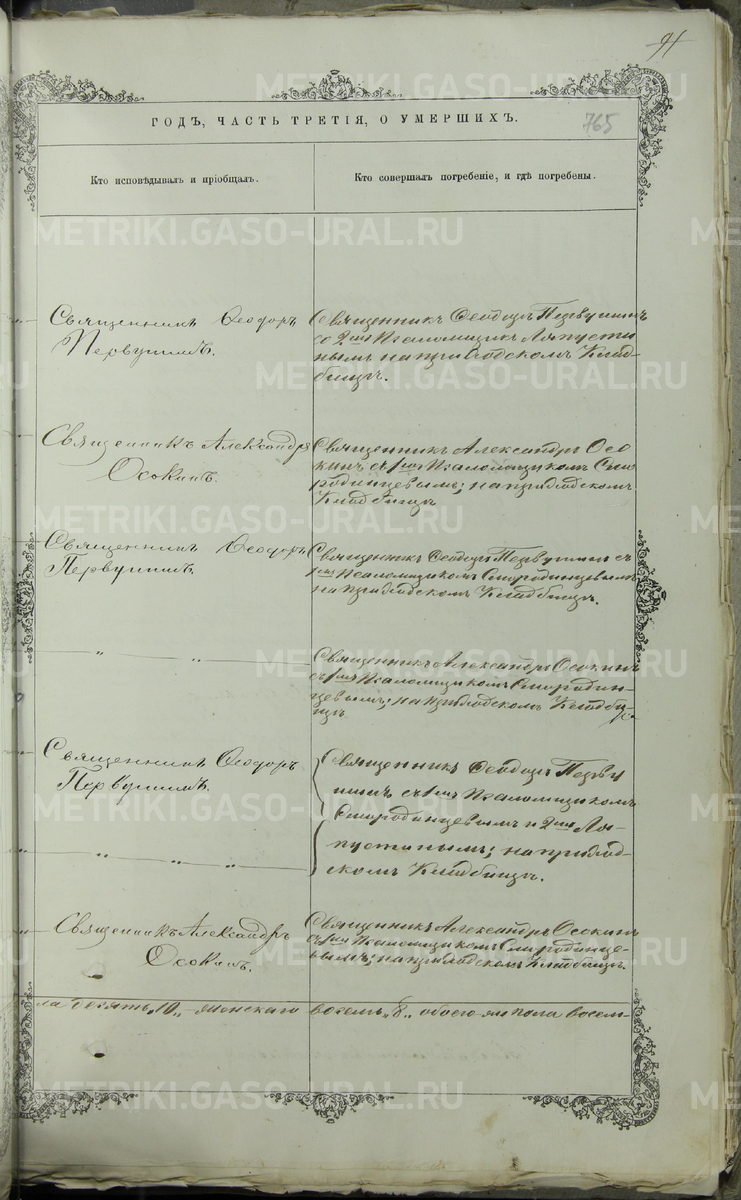 91
ГОДЪ, ЧАСТЬ ТРЕТІЯ, О УМЕРШИХЪ.
765
Кто исповѣдывалъ и пріобщалъ.
Кто совершалъ погребеніе, и гдѣ погребены.
Священникъ Ѳеодоръ
Первушинъ.
Священникъ Ѳеодоръ Первушинъ
со 2мъ Псаломщик Лапусти
нымъ на приходскомъ Клад-
бищѣ.
Священникъ Александръ
Осокинъ.
Священникъ Александръ Осо
кинъ съ 1мъ Псаломщикомъ Смо
родинцевымъ; на приходскомъ
Кладбищѣ
Священникъ Ѳеодоръ
Первушинъ.
Священникъ Ѳеодоръ Первушинъ съ
1мъ Псаломщикомъ Смородинцевымъ
на приходскомъ Кладбищѣ.
" "
Священникъ Александръ Осокинъ
съ 1мъ Псаломщикомъ Смородин-
цевымъ; на приходскомъ Кладби-
щѣ
Священникъ Ѳеодоръ
Первушинъ.
" " "
Священникъ Ѳеодоръ Перву
шинъ съ 1мъ Псаломщикомъ
Смородинцевымъ и 2мъ Ла-
пустинымъ; на приход-
скомъ Кладбищѣ.
Священникъ Александръ
Осокинъ.
Священникъ Александръ Осокинъ
съ 1мъ Псаломщикомъ Смородинце-
вымъ; на приходскомъ Кладбищѣ.
ла десять "10" женскаго восемь "8" обоего пола восем-
METRIKI.GASO-URAL.RU